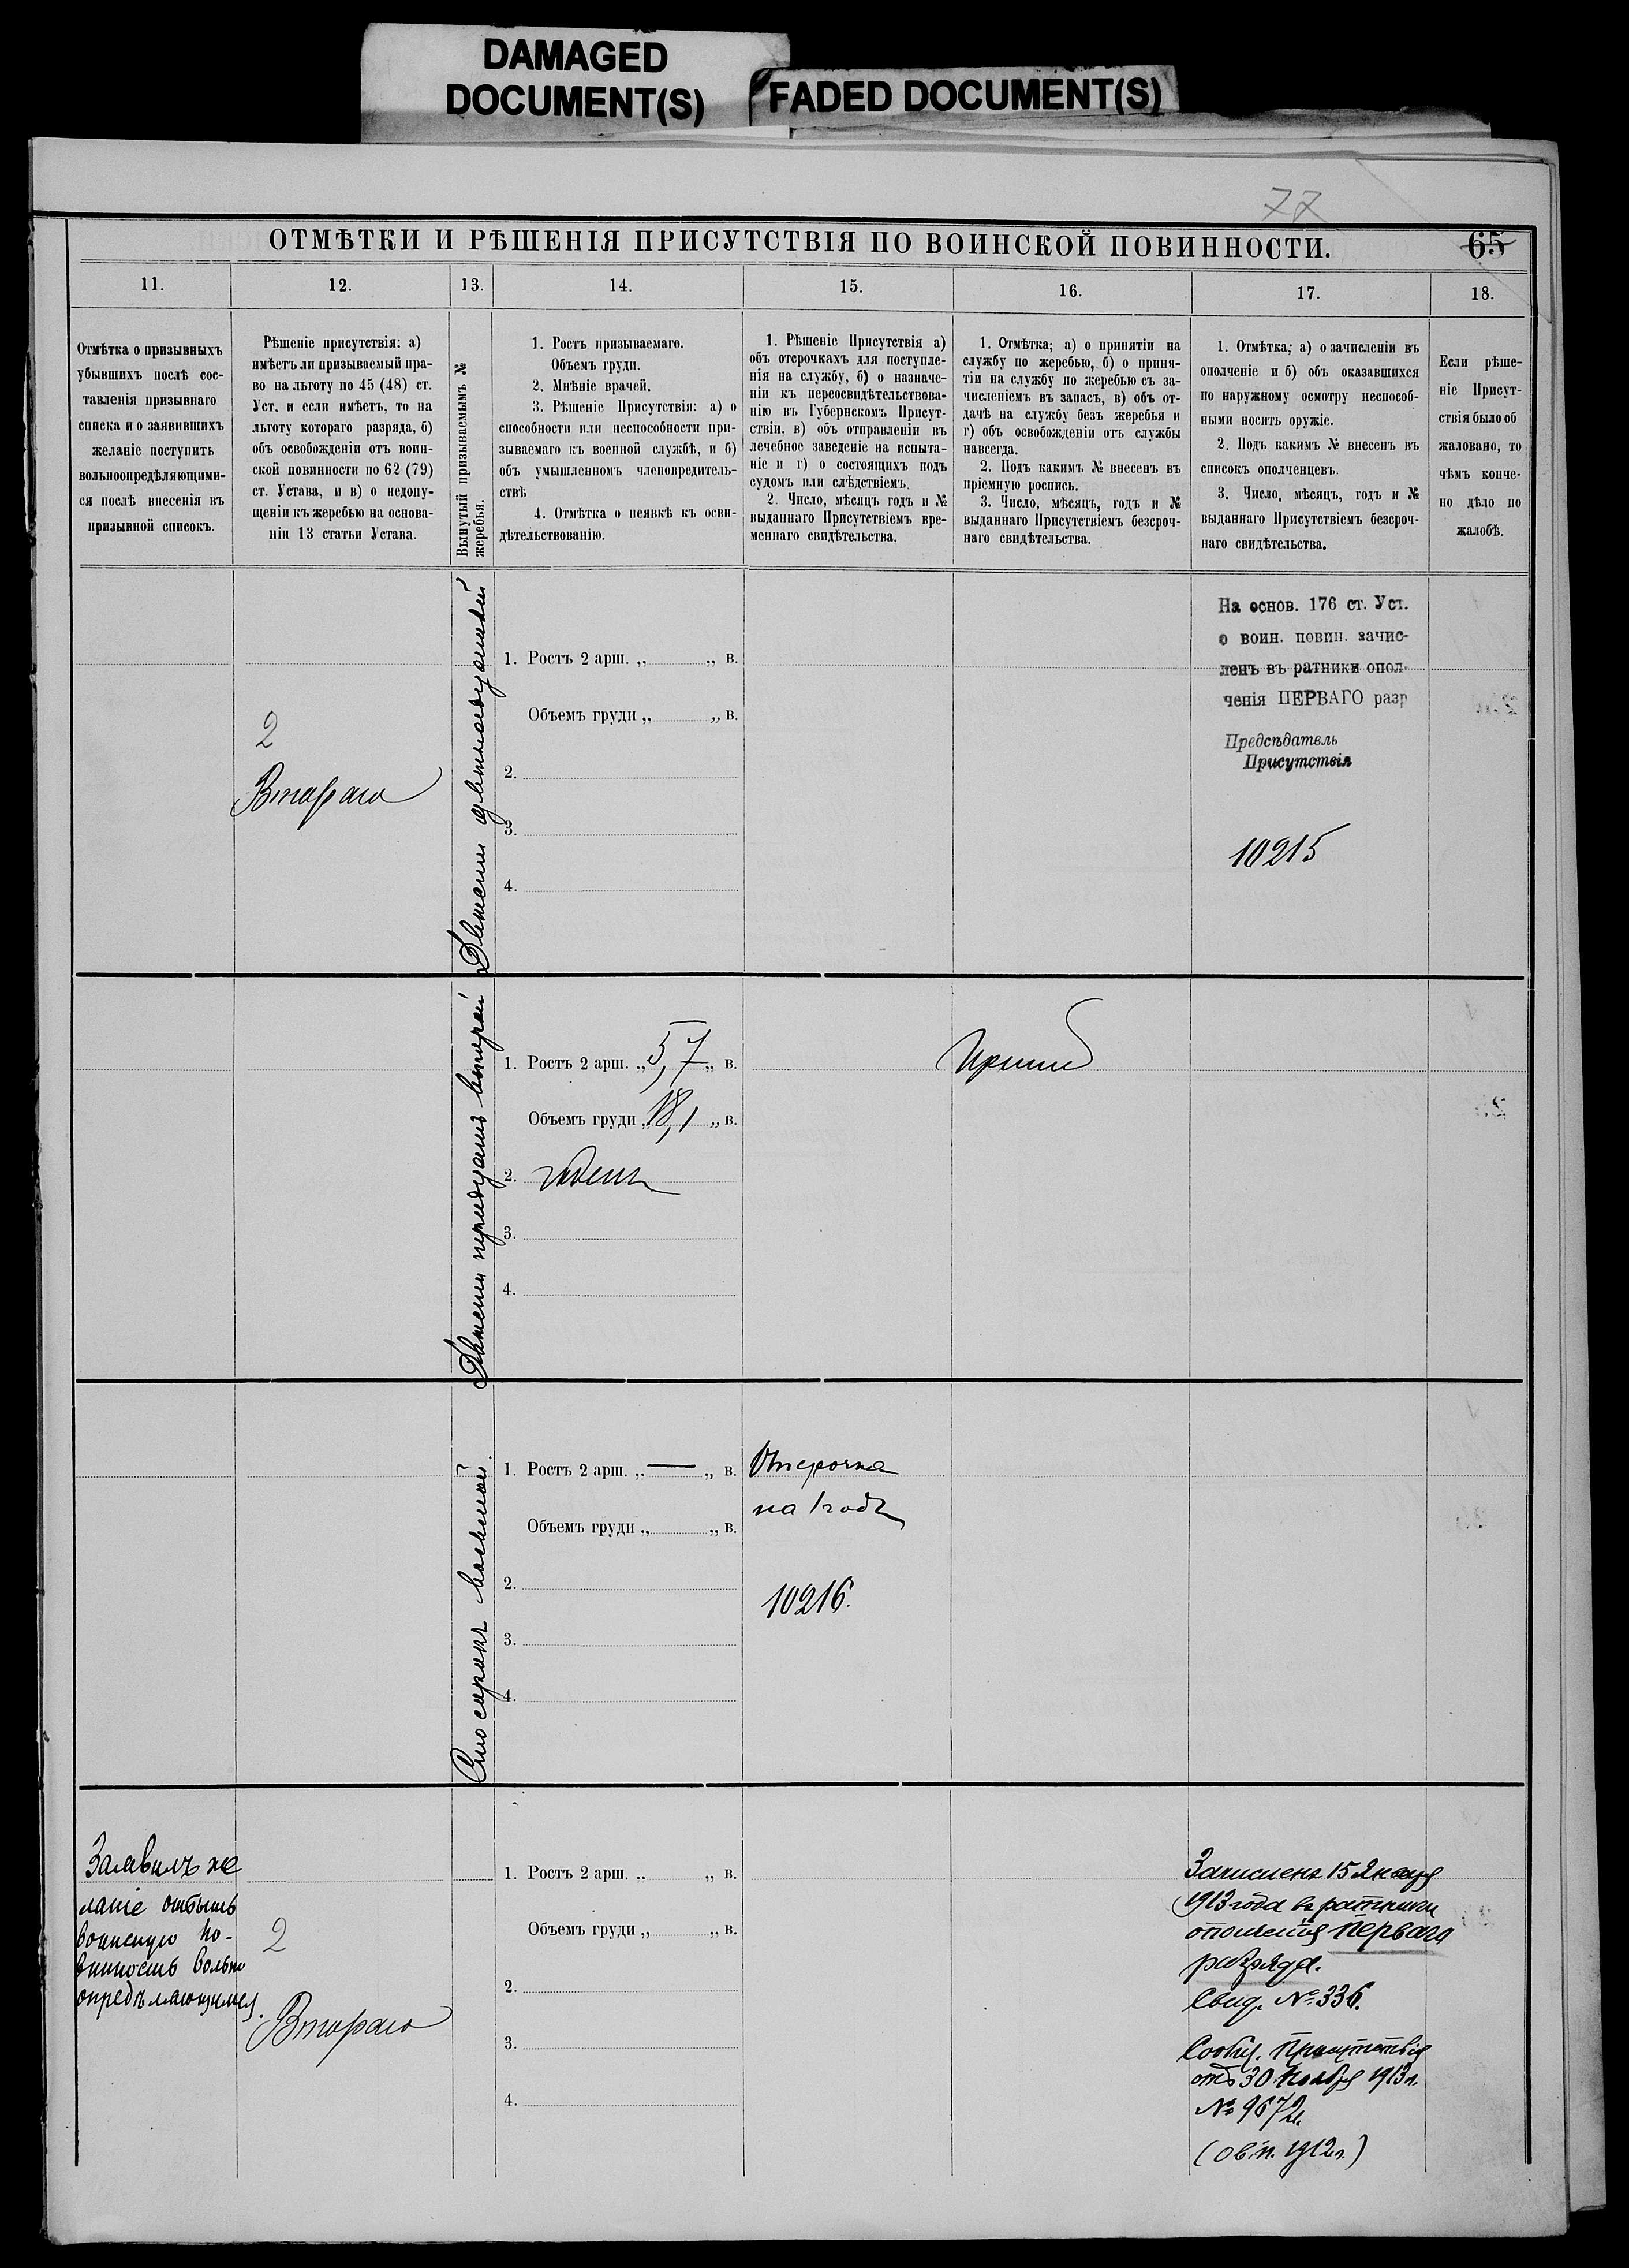 DAMAGED
DOCUMENT(S)
FADED DOCUMENT(S)
77
ОТМѢТКИ И РѢШЕНІЯ ПРИСУТСТВІЯ ПО ВОИНСКОЙ ПОВИННОСТИ.
65
11.
12.
13.
14.
15.
16.
17.
18.
Отмѣтка о призывныхъ
убывшихъ послѣ сос-
тавленія призывнаго
списка и о заявившихъ
желаніе поступить
вольноопредѣляющими-
ся послѣ внесенія въ
призывной списокъ.
Рѣшеніе присутствія: а)
имѣетъ ли призываемый пра-
во на льготу по 45 (48) ст.
Уст. и если имѣетъ, то на
льготу котораго разряда, б)
объ освобожденіи отъ воин-
ской повинности по 62 (79)
ст. Устава, и в) о недопу-
щеніи къ жеребью на основа-
ніи 13 статьи Устава.
Вынутый призываемымъ №
жеребья.
1. Ростъ призываемаго.
Объемъ груди.
2. Мнѣніе врачей.
3. Рѣшеніе Присутствія: а) о
способности или неспособности при-
зываемаго къ военной службѣ, и б)
объ умышленномъ членовредитель-
ствѣ
4. Отмѣтка о неявкѣ къ осви-
дѣтельствованію.
1. Рѣшеніе Присутствія а)
объ отсрочкахъ для поступле-
нія на службу, б) о назначе-
ніи къ переосвидѣтельствова-
нію въ Губернскомъ Присут-
ствіи. в) объ отправленіи въ
лечебное заведеніе на испыта-
ніе и г) о состоящихъ подъ
судомъ или слѣдствіемъ.
2. Число, мѣсяцъ годъ и №
выданнаго Присутствіемъ вре-
меннаго свидѣтельства.
1. Отмѣтка; а) о принятіи на
службу по жеребью, б) о приня-
тіи на службу по жеребью съ за-
численіемъ въ запасъ, в) объ от-
дачѣ на службу безъ жеребья и
г) объ освобожденіи отъ службы
навсегда.
2. Подъ какимъ № внесенъ въ
пріемную роспись.
3. Число, мѣсяцъ, годъ и №
выданнаго Присутствіемъ безсроч-
наго свидѣтельства.
1. Отмѣтка; а) о зачисленіи въ
ополченіе и б) объ оказавшихся
по наружному осмотру неспособ-
ными носить оружіе.
2. Подъ какимъ № внесенъ въ
списокъ ополченцевъ.
3. Число, мѣсяцъ, годъ и №
выданнаго Присутствіемъ безсроч-
наго свидѣтельства.
Если рѣше-
ніе Присут-
ствія было об
жаловано, то
чѣмъ конче-
но дѣло по
жалобѣ.
2
Втораго
Двѣсти
1. Ростъ 2 арш. „ „ в.
Объемъ груди „ „ в.
2.
3.
4.
На основ. 176 ст. Уст.
о воин. повин. зачис-
ленъ въ ратники опол-
ченія ПЕРВАГО разр
Предсѣдатель
Присутствія
10215
Двѣсти тридцать второй
1. Ростъ 2 арш. „ 5,7 „ в.
Объемъ груди „ 18,1 „ в.
2. годенъ
3.
4.
Принятъ
Сто сорокъ восьмой.
1. Ростъ 2 арш. „ — „ в.
Объемъ груди „ „ в.
2.
3.
4.
Отсрочка
на 1 годъ
10216.
Заявилъ же
ланіе отбыть
воинскую по-
винность вольно
опредѣляющимся.
2
Втораго
1. Ростъ 2 арш. „ „ в.
Объемъ груди „ „ в.
2.
3.
4.
Зачисленъ 15 Января
1913 года въ ратники
ополченія перваго
разряда.
Свид. № 336.
Сообщ. Присутствія
отъ 30 Ноября 1913 г.
№ 9672
1912 г.)